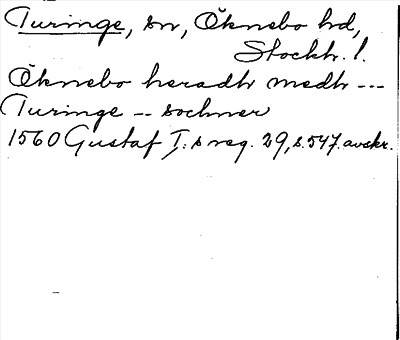 Turinge, sn, Öknebo hd,
Stockh. l.
Öknebo heradh medh ---
Turinge -- sochner
1560 Gustaf I:s reg. 29, s. 547. avskr.